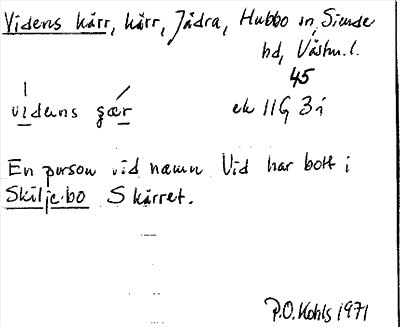 Videns kärr, kärr, Jädra, Hubbo sn, Siende
hd, Västm. l.
45
videns ʂær ek 11G 3i
En person vid namn Vid har bott i
Skilje·bo S kärret.
P.O. Kohls 1971